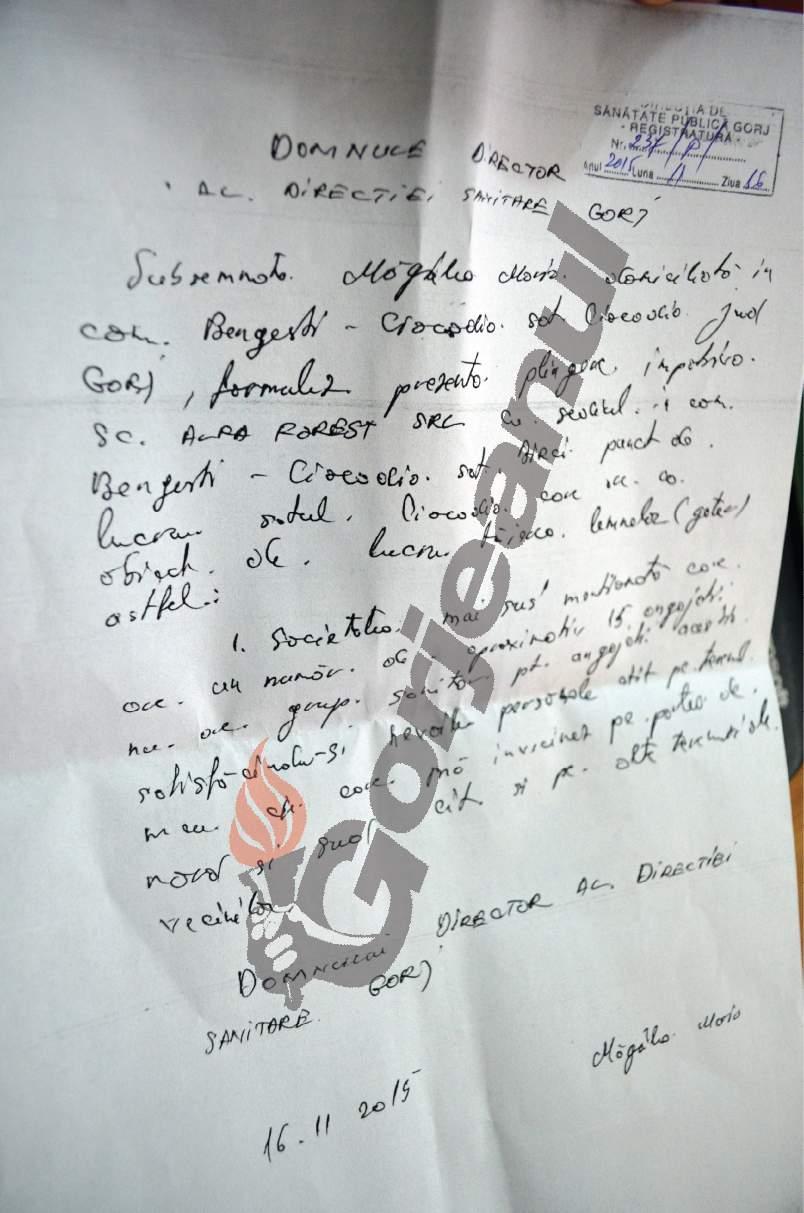 DIRECȚIA DE
SĂNĂTATE PUBLICĂ GORJ
- REGISTRATURĂ -
Nr.
Anul 2015 Luna 11 Ziua 16
DOMNULE DIRECTOR
AL. DIRECTIEI SANITARE GORJ
Subsemnata. Maria. domiciliată în
com. Bengesti - Ciocadia. sat. Ciocadia Jud
GORJ, formulez prezenta. plîngere, împotriva.
SC. ALRA FOREST SRL cu sediul. com.
Bengesti - Ciocadia. sat. Bircii punct de.
lucru. satul. Ciocadia. care are. ca.
obiect. de. lucru. lemnelor (gater)
astfel:
1. Societatea. mai sus mentionată care.
are. un număr. de. aproximativ 15 angajati.
nu. are. grup. sanitar pt. angajati acestia
satisfă-cîndu-si nevoile personale atît pe terenul
meu. care. mă învecinez pe partea de.
nord si sud cît si pe. alte terenuri ale.
vecinilor.
DOMNULUI DIRECTOR AL. DIRECTIEI
SANITARE. GORJ
16.11 2015
Maria
Gorjeanul